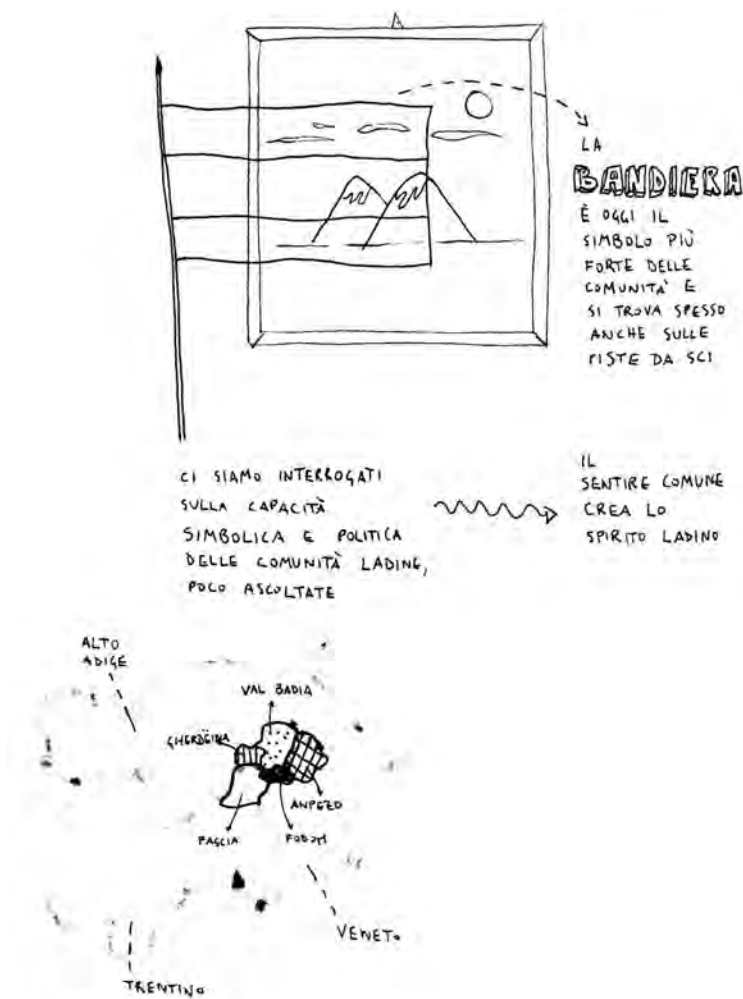 LA
BANDIERA
È OGGI IL
SIMBOLO PIÙ
FORTE DELLE
COMUNITÀ E
SI TROVA SPESSO
ANCHE SULLE
PISTE DA SCI
CI SIAMO INTERROGATI
SULLA CAPACITÀ
SIMBOLICA E POLITICA
DELLE COMUNITÀ LADINE,
POCO ASCOLTATE
IL
SENTIRE COMUNE
CREA LO
SPIRITO LADINO
ALTO
ADIGE
VAL BADIA
GHERDËINA
ANPEZO
FASCIA
FODOM
VENETO
TRENTINO